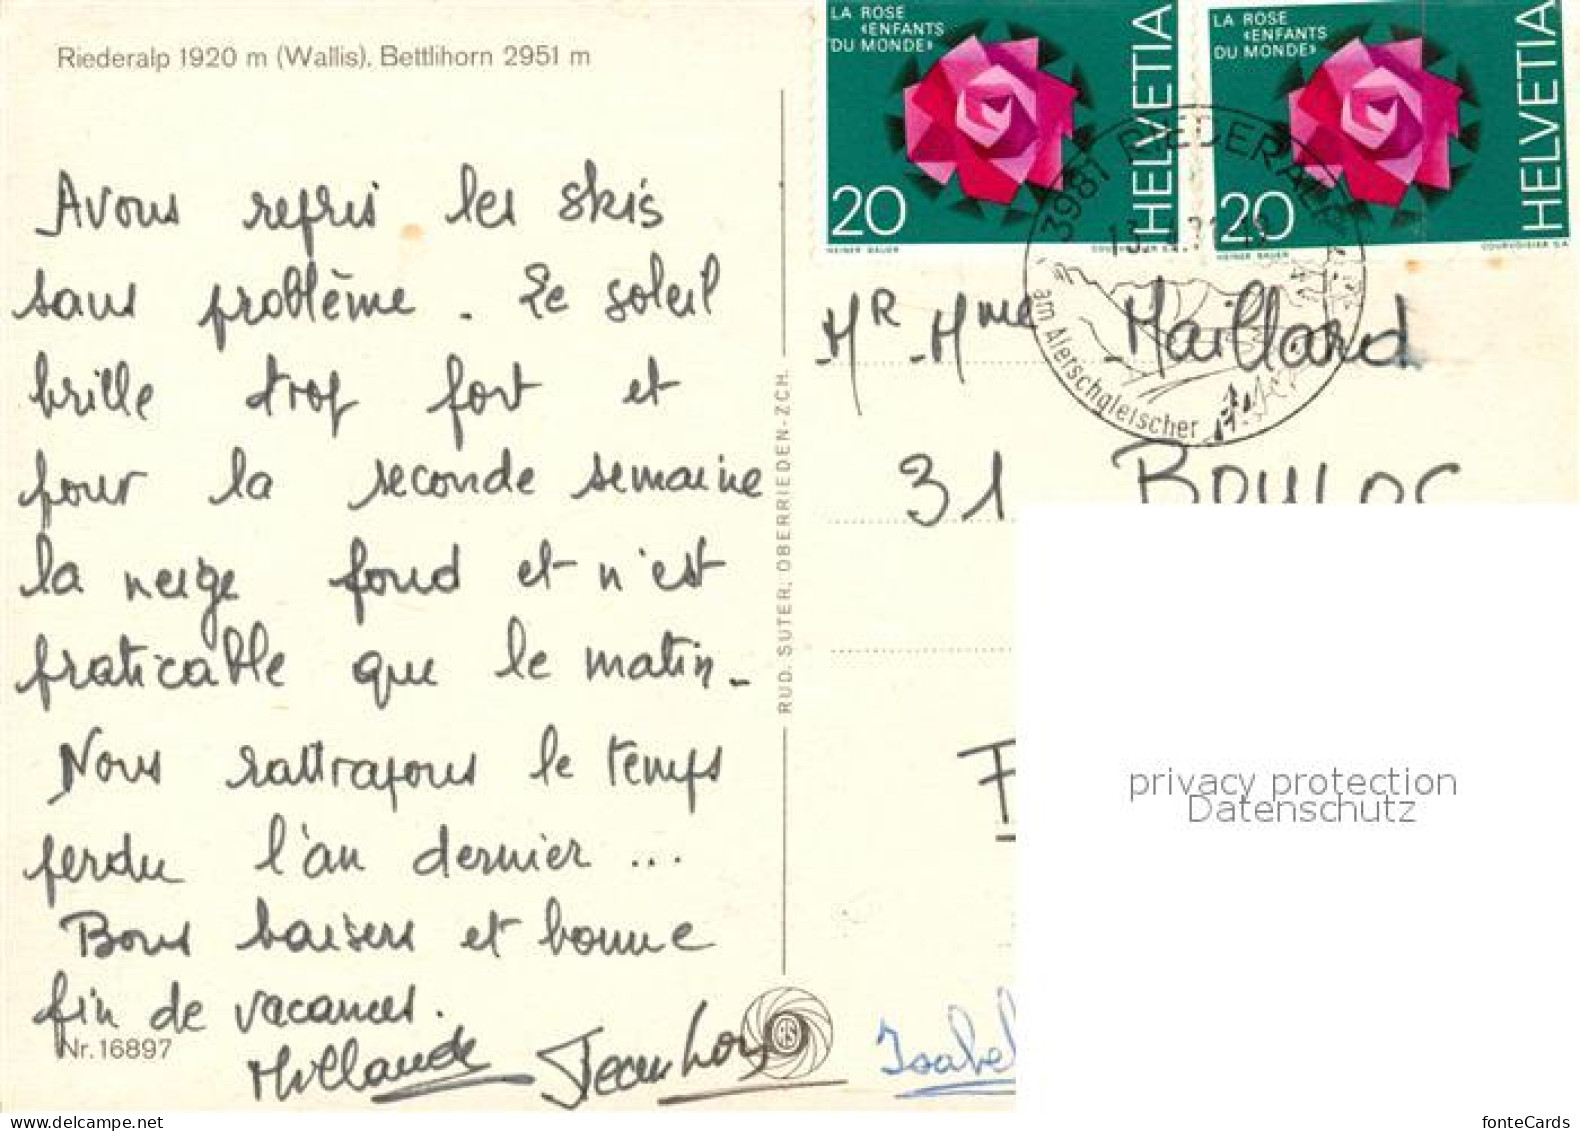 Riederalp 1920 m (Wallis). Bettlihorn 2951 m
Avons repris les skis
sans problème. Le soleil
brille trop fort et
pour la seconde semaine
la neige fond et n'est
praticable que le matin -
Nous rattrapons le temps
perdu l'an dernier ...
Bons baisers et bonne
fin de vacances.
Nr. 16897
Jean Lou
Isabel
RUD. SUTER, OBERRIEDEN-ZCH.
LA ROSE
«ENFANTS
DU MONDE»
HELVETIA
20
HEINER BAUER
COURVOISIER S.A.
LA ROSE
«ENFANTS
DU MONDE»
HELVETIA
20
HEINER BAUER
COURVOISIER S.A.
3981 RIEDERALP
am Aletschgletscher
Mr. Mme Maillard
31 BOULOC
F
privacy protection
Datenschutz
www.delcampe.net
fonteCards